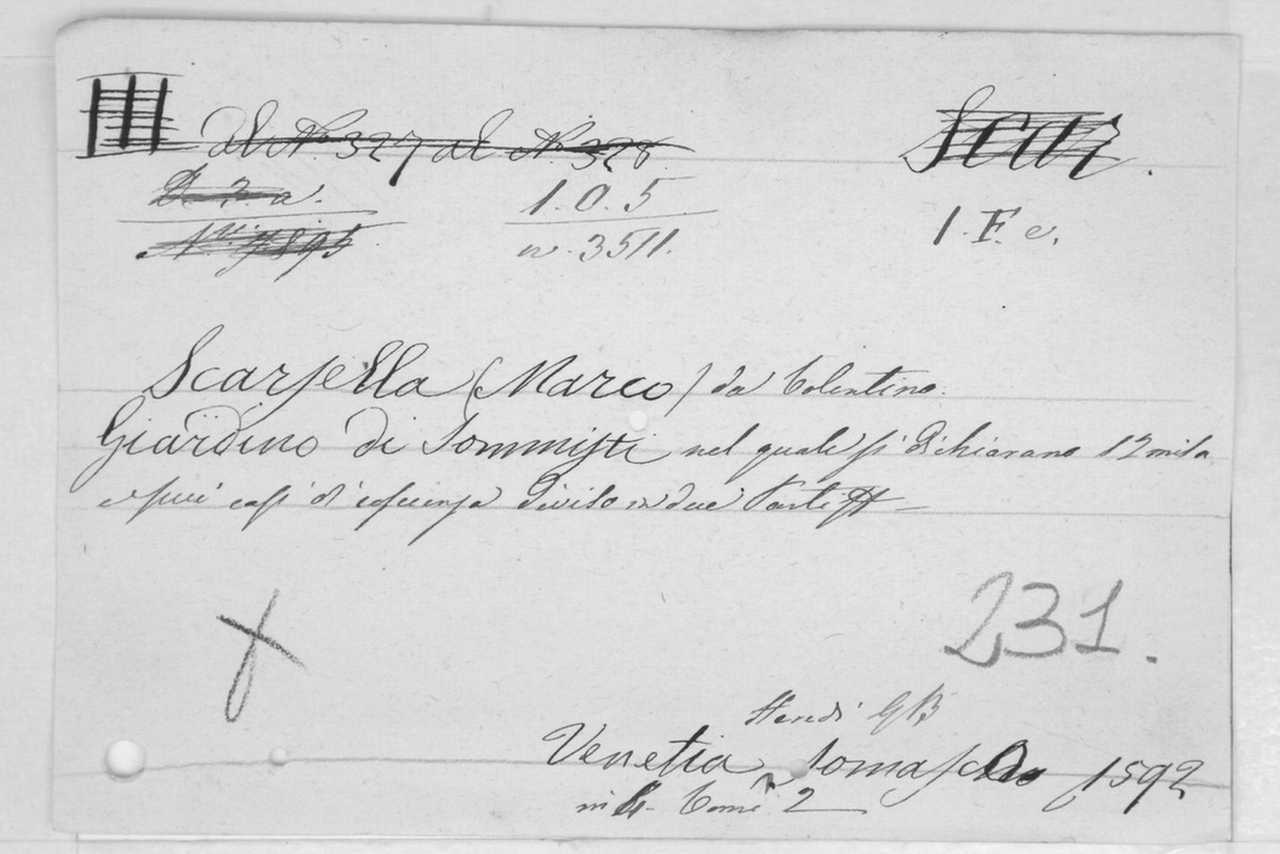 III Dal N. 327 al N. 328 Scar.
D. 2. a. 1. O. 5 1. F. e.
N. 7895 n. 3511.
Scarsella (Marco) da Tolentino.
Giardino di Sommisti nel quale si dichiarano 12 mila
e più casi di divisa in due Parti
231.
Heredi GB
Venetia Somasco 1592
in 4. Tomi 2